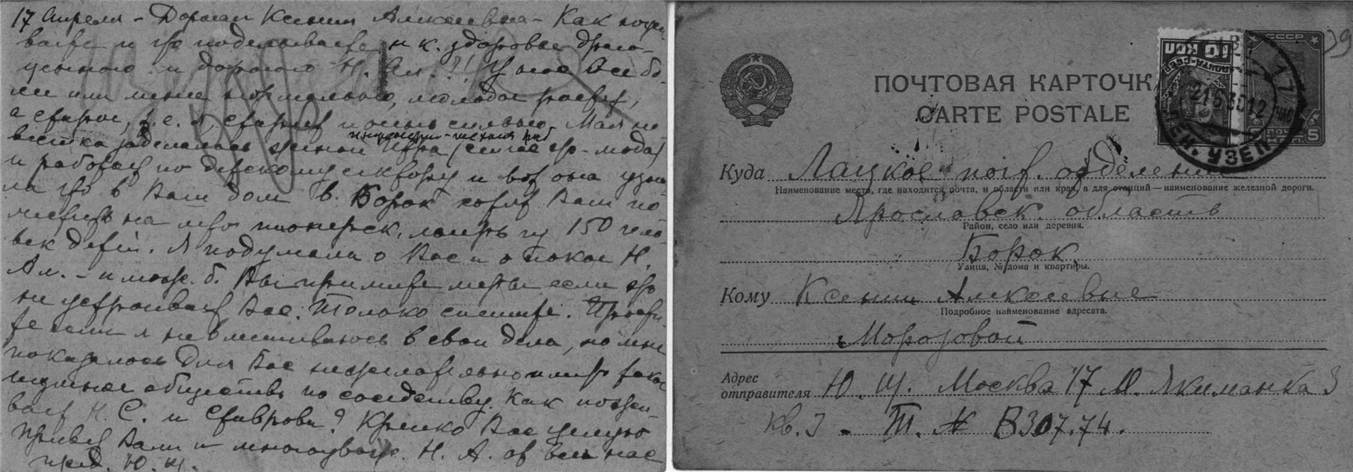 17 Апреля – Дорогая Ксения Алексеевна – Как пожи-
ваете и что поделываете и к. здоровье драго-
ценного и дорогого Н. Ал.?!! У нас все бо-
лее или менее нормально, молодое растет,
а старое, т.е. я, стареет и очень сильно. Моя не-
вестка сделалась женой
и работает по детскому сектору и вот она узна-
ла что в Ваш дом в Борок хотят Вам по-
местить на лето пионерск. лагерь чу 150 чело-
век детей. Я подумала о Вас и о покое Н.
Ал. – и может б. Вы примите меры если это
не устраивает Вас. Только спешите. Прости-
те если я не вмешиваюсь в свои дела, но мне
показалось для Вас нежелательно иметь такое
шумное общество по соседству. Как пожи-
вает Н. С. и Ставрова? Крепко Вас целую
привет Вам и многоуваж. Н. А. от всех нас
Ю. Щ.
ПОЧТОВАЯ КАРТОЧКА
CARTE POSTALE
СССР
10 КОП
ПОЧТА СССР
21 5 30 12
17
УЗЕЛ
39
Куда Лацкое почт. отделение
Наименование места, где находится почта, и области или края, а для станций — наименование железной дороги.
Ярославск. область
Район, село или деревня.
Борок
Улица, № дома и квартиры.
Кому Ксении Алексеевне
Подробное наименование адресата.
Морозовой
Адрес отправителя Ю. Щ. Москва 17 М. Якиманка 3
кв. 3 – Т. № В307.74.